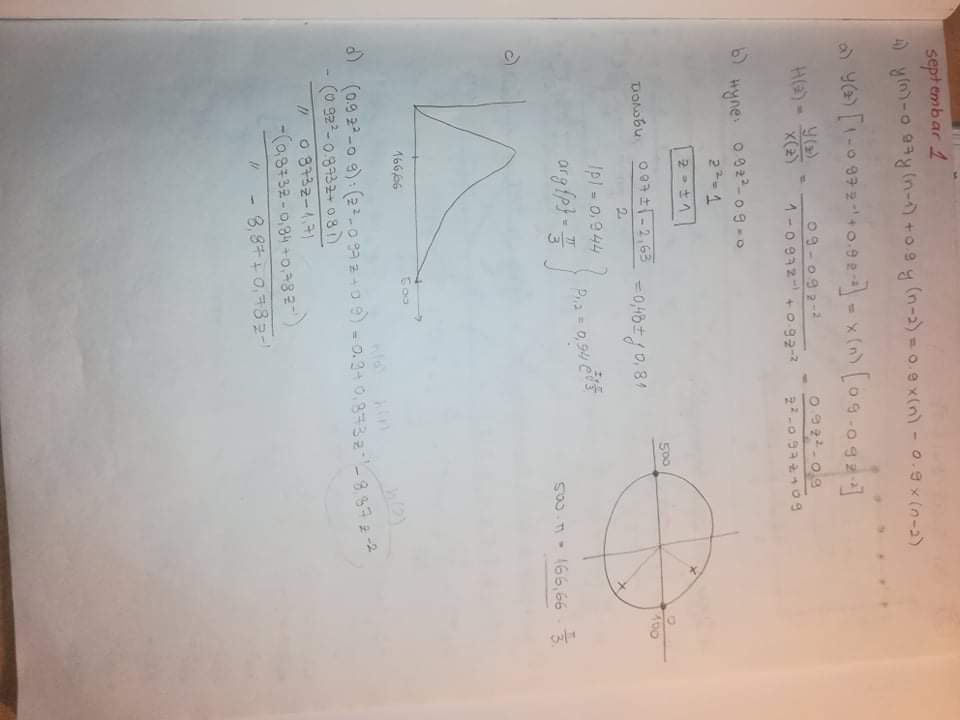 septembar 1
1) y(n)-0.97y(n-1)+0.9y(n-2)=0.9x(n)-0.9x(n-2)
a) Y(z)[1-0.97z⁻¹+0.9z⁻²]=X(n)[0.9-0.9z⁻²]
H(z) = Y(z)/X(z) = (0.9-0.9z⁻²)/(1-0.97z⁻¹+0.9z⁻²) = (0.9z²-0.9)/(z²-0.97z+0.9)
b) Нуле: 0.9z²-0.9=0
z²=1
z=±1
полови: (0.97±√-2,63)/2 = 0,48±j0,81
|p|=0,944
arg{p}=π/3
p₁,₂=0,94e^(±jπ/3)
500
0
100
500·π = 166,66·π/3
c)
166,66
500
d) (0.9z²-0.9):(z²-0.97z+0.9)=0.9+0,873z⁻¹-8,87z⁻²
h(0) h(1) h(2)
-(0.9z²-0.873z+0.81)
" 0.873z-1,71
-(0,873z-0,84+0,78z⁻¹)
" -8,87+0,78z⁻¹